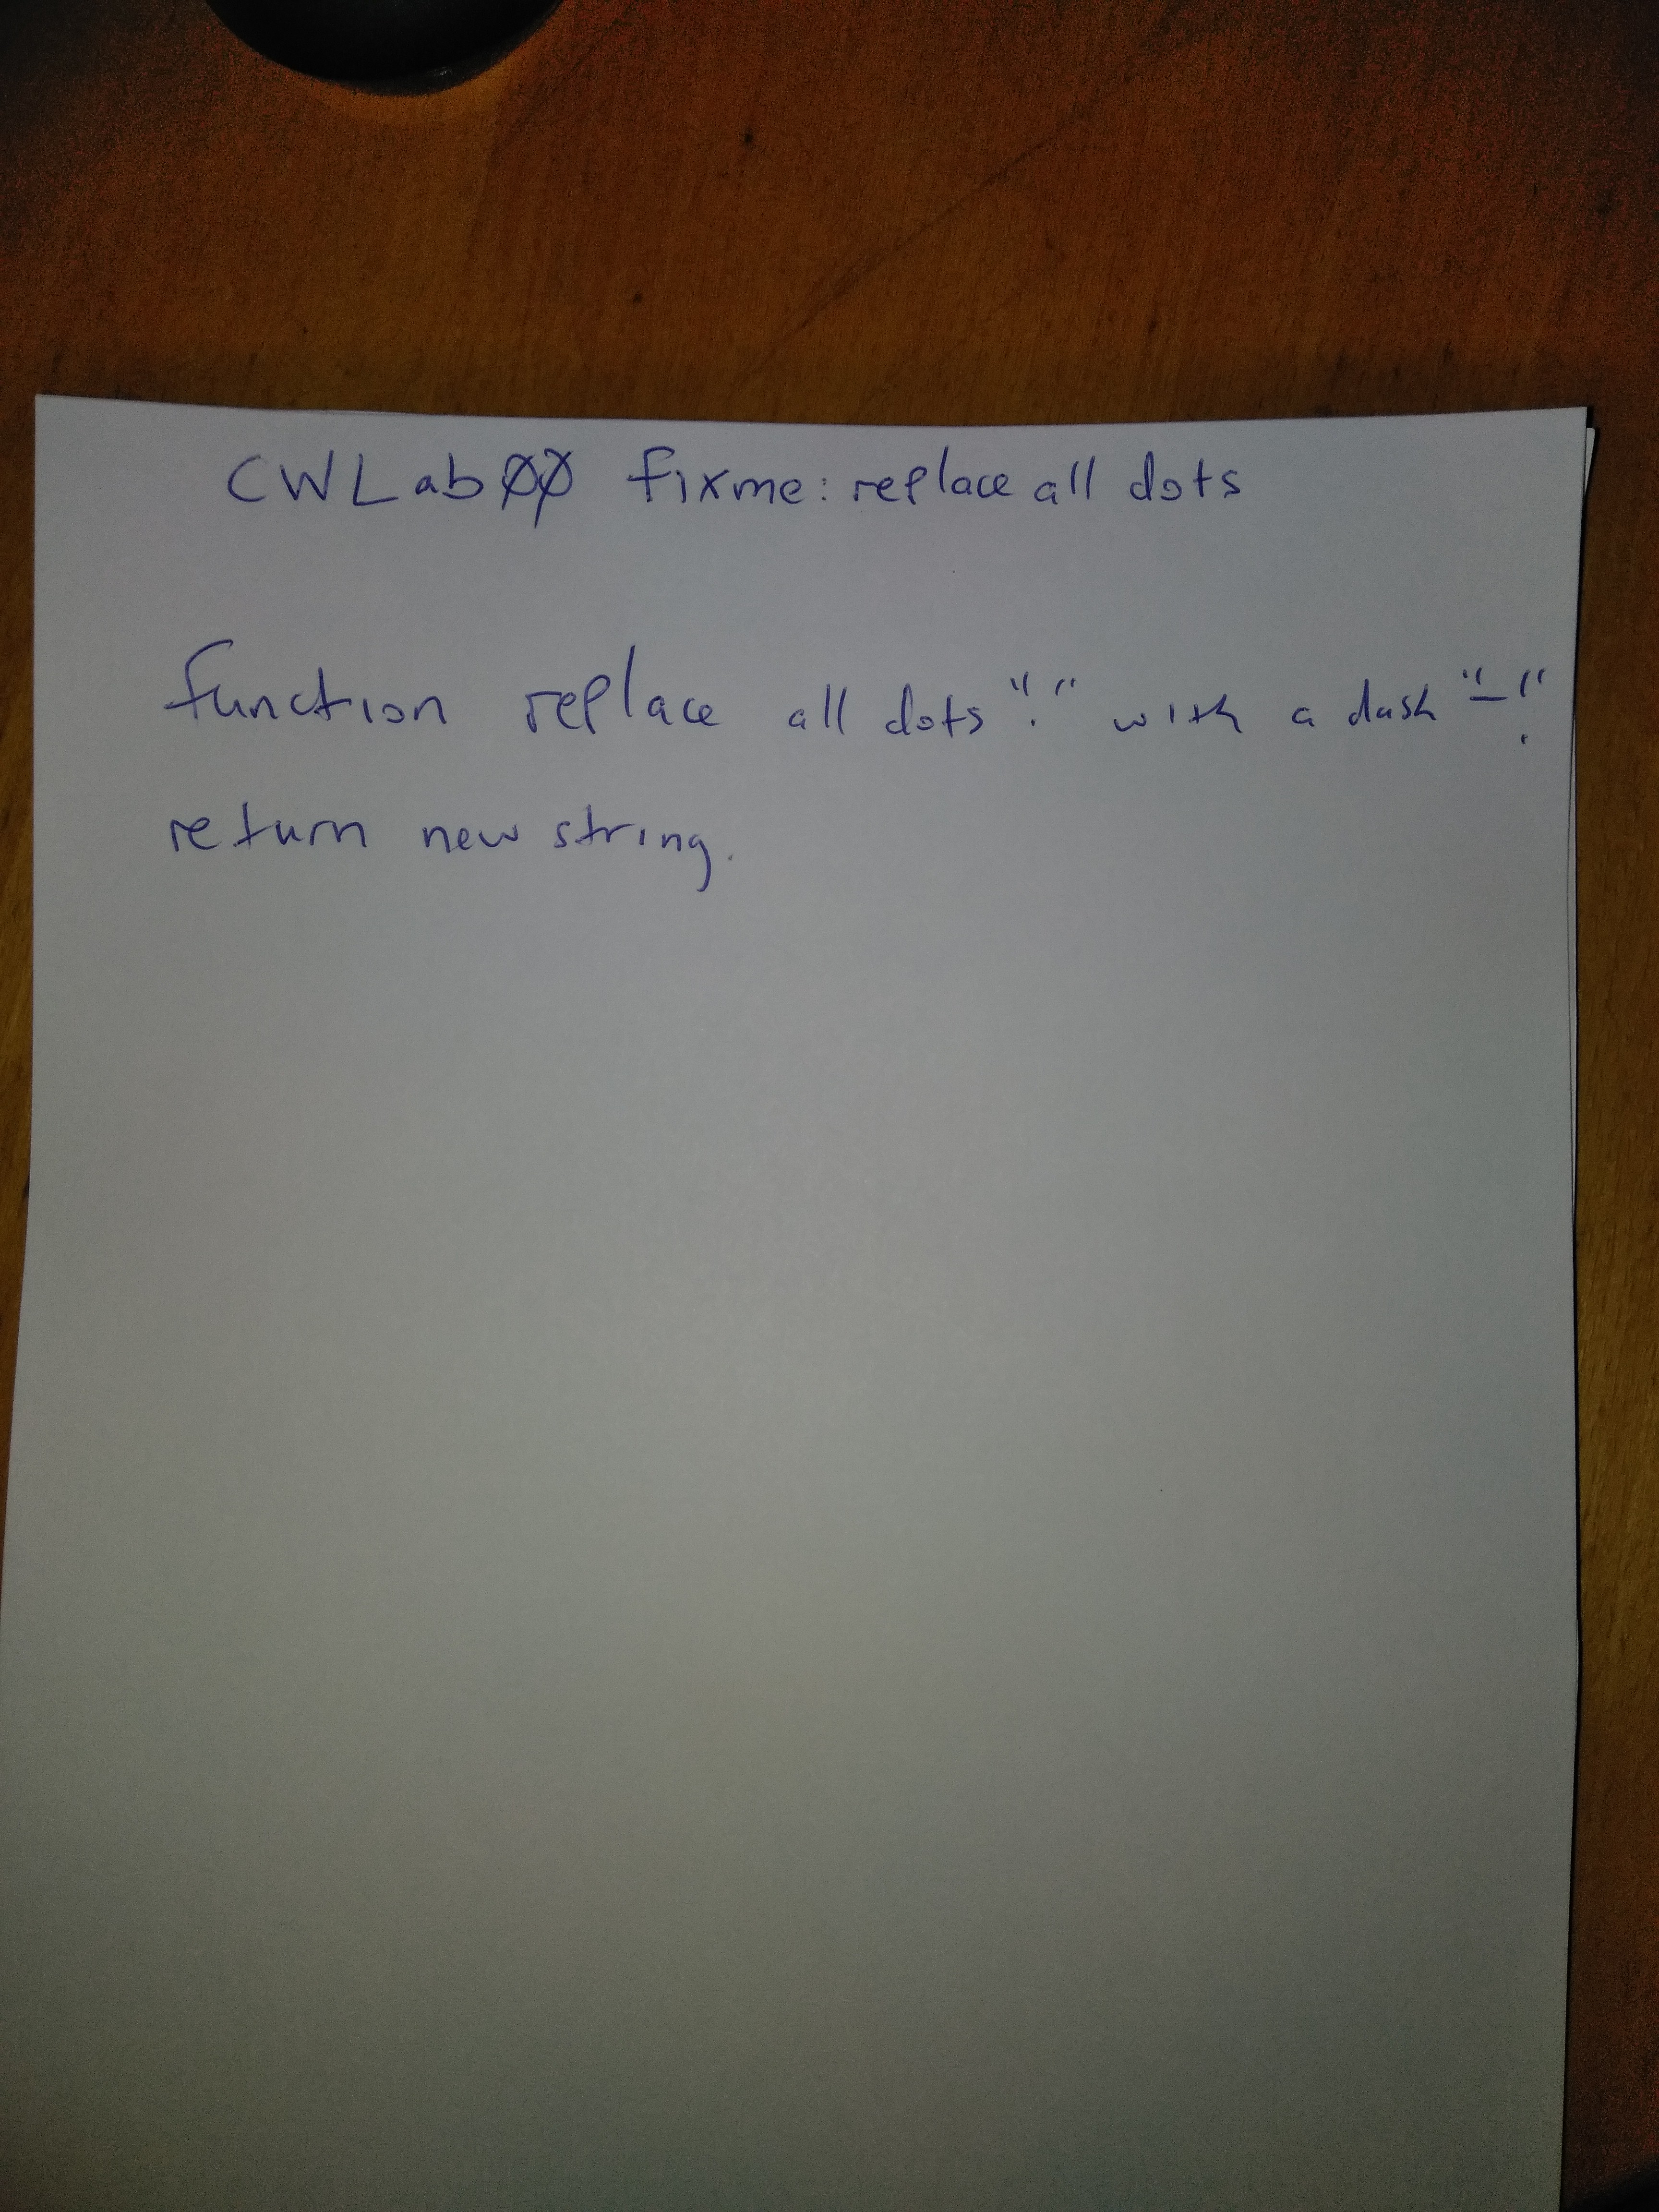 CWLab00 fixme: replace all dots
function replace all dots "." with a dash "-".
return new string.